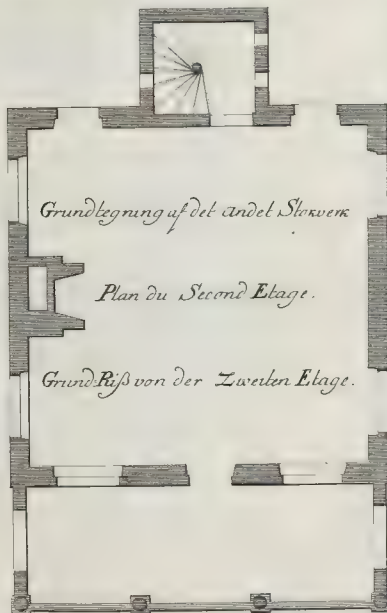 Grundtegning af det andet Stokverk
Plan du Second Etage.
Grund-Riß von der Zweiten Etage.